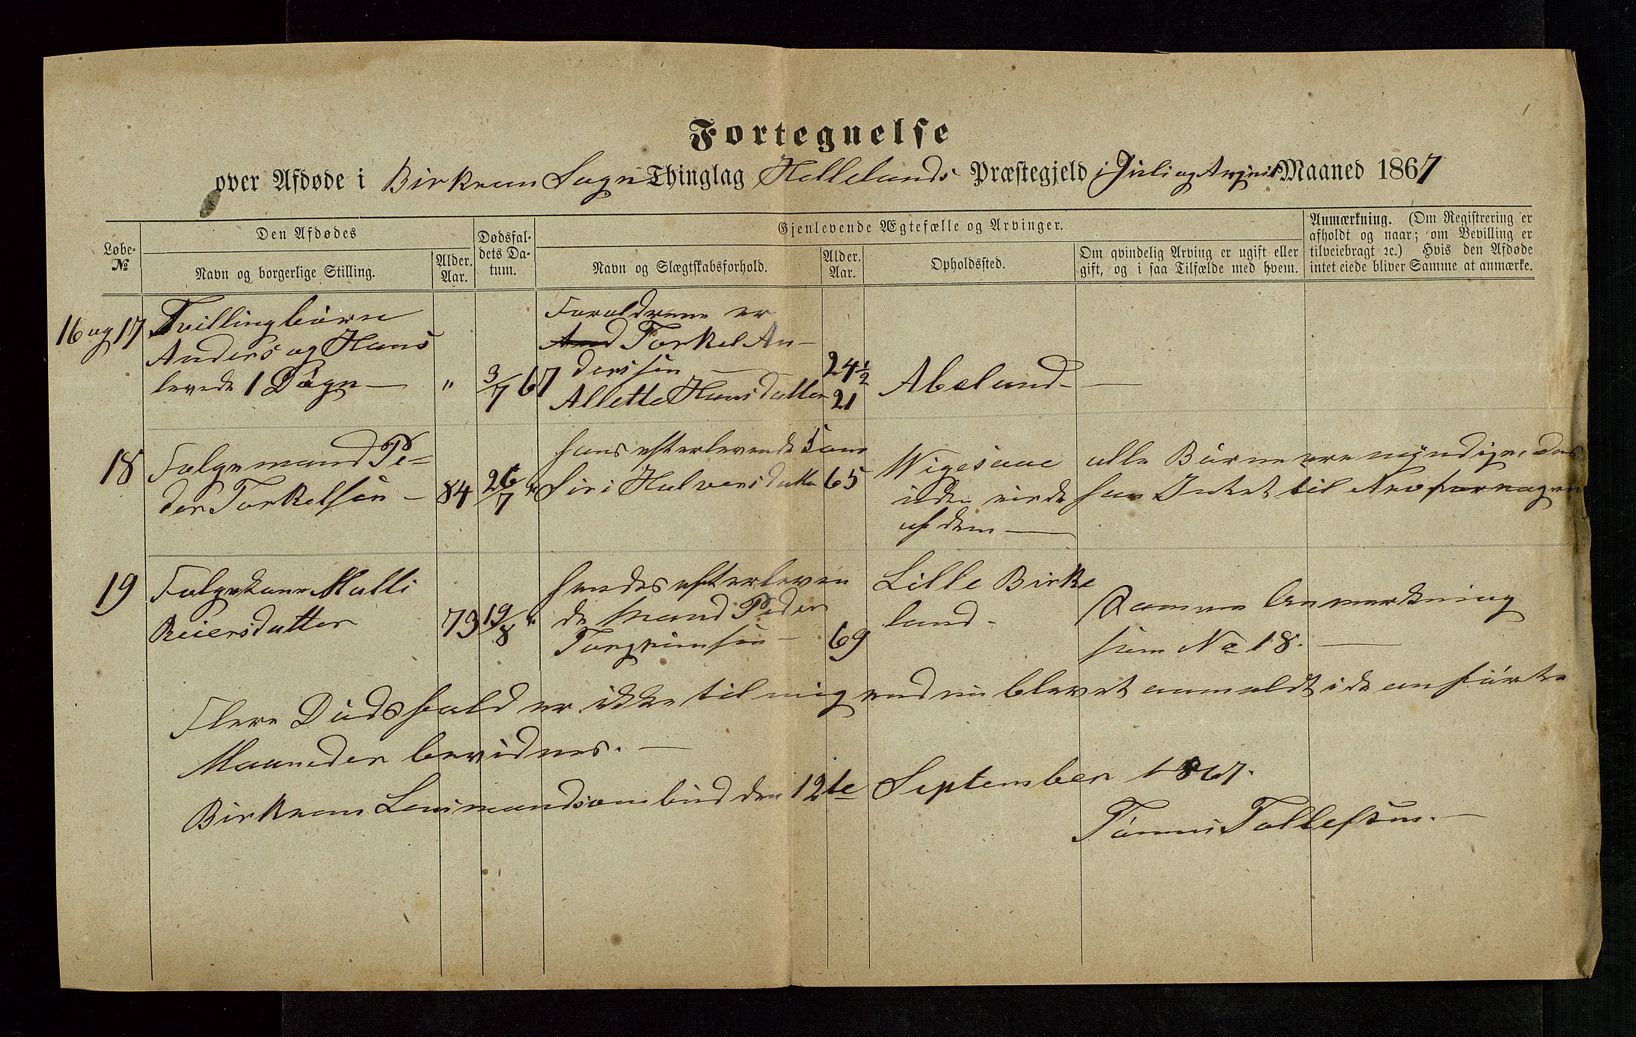 Fortegnelse
over Afdøde i Birkrem Sogns Thinglag Hellelands Præstegjeld i Juli og August Maaned 1867
Løbe-
№
Den Afdødes
Navn og borgerlige Stilling.
Alder.
Aar.
Dødsfal-
dets Da-
tum.
Gjenlevende Ægtefælle og Arvinger.
Navn og Slægtskabsforhold.
Alder.
Aar.
Opholdssted.
Om qvindelig Arving er ugift eller
gift, og i saa Tilfælde med hvem.
Anmærkning. (Om Registrering er
afholdt og naar; om Bevilling er
tilveiebragt 2c.) Hvis den Afdøde
intet eiede bliver Samme at anmærke.
16 og 17
Tvillingbørn
Anders og Hans
levede 1 Døgn —
"
3/7 67
Forældrene er
And Torkel An-
derssøn —
Allette Hansdatter
24 1/2
21
Abeland — —
18
Folgemand Pe-
der Torkelsøn —
84
26/7 "
hans efterlevende Kone
Siri Halversdatter
65
Wigesaae
af dem —
alle Børn ere myndige,
har Intet til Arv for nogen
19
Folgekone Malli
Reiersdatter
73
19/8 "
hendes efterleven
de Mand Peder
Torgrimsøn —
69
Lille Birke
land —
Samme Anmærkning
som No 18. —
Flere Dødsfald er ikke til mig endnu blevet anmeldt i de anførte
Maaneder bevidnes. —
Birkrem Lensmandsombud den 12te September 1867.
Tønnes Tollefsen. —